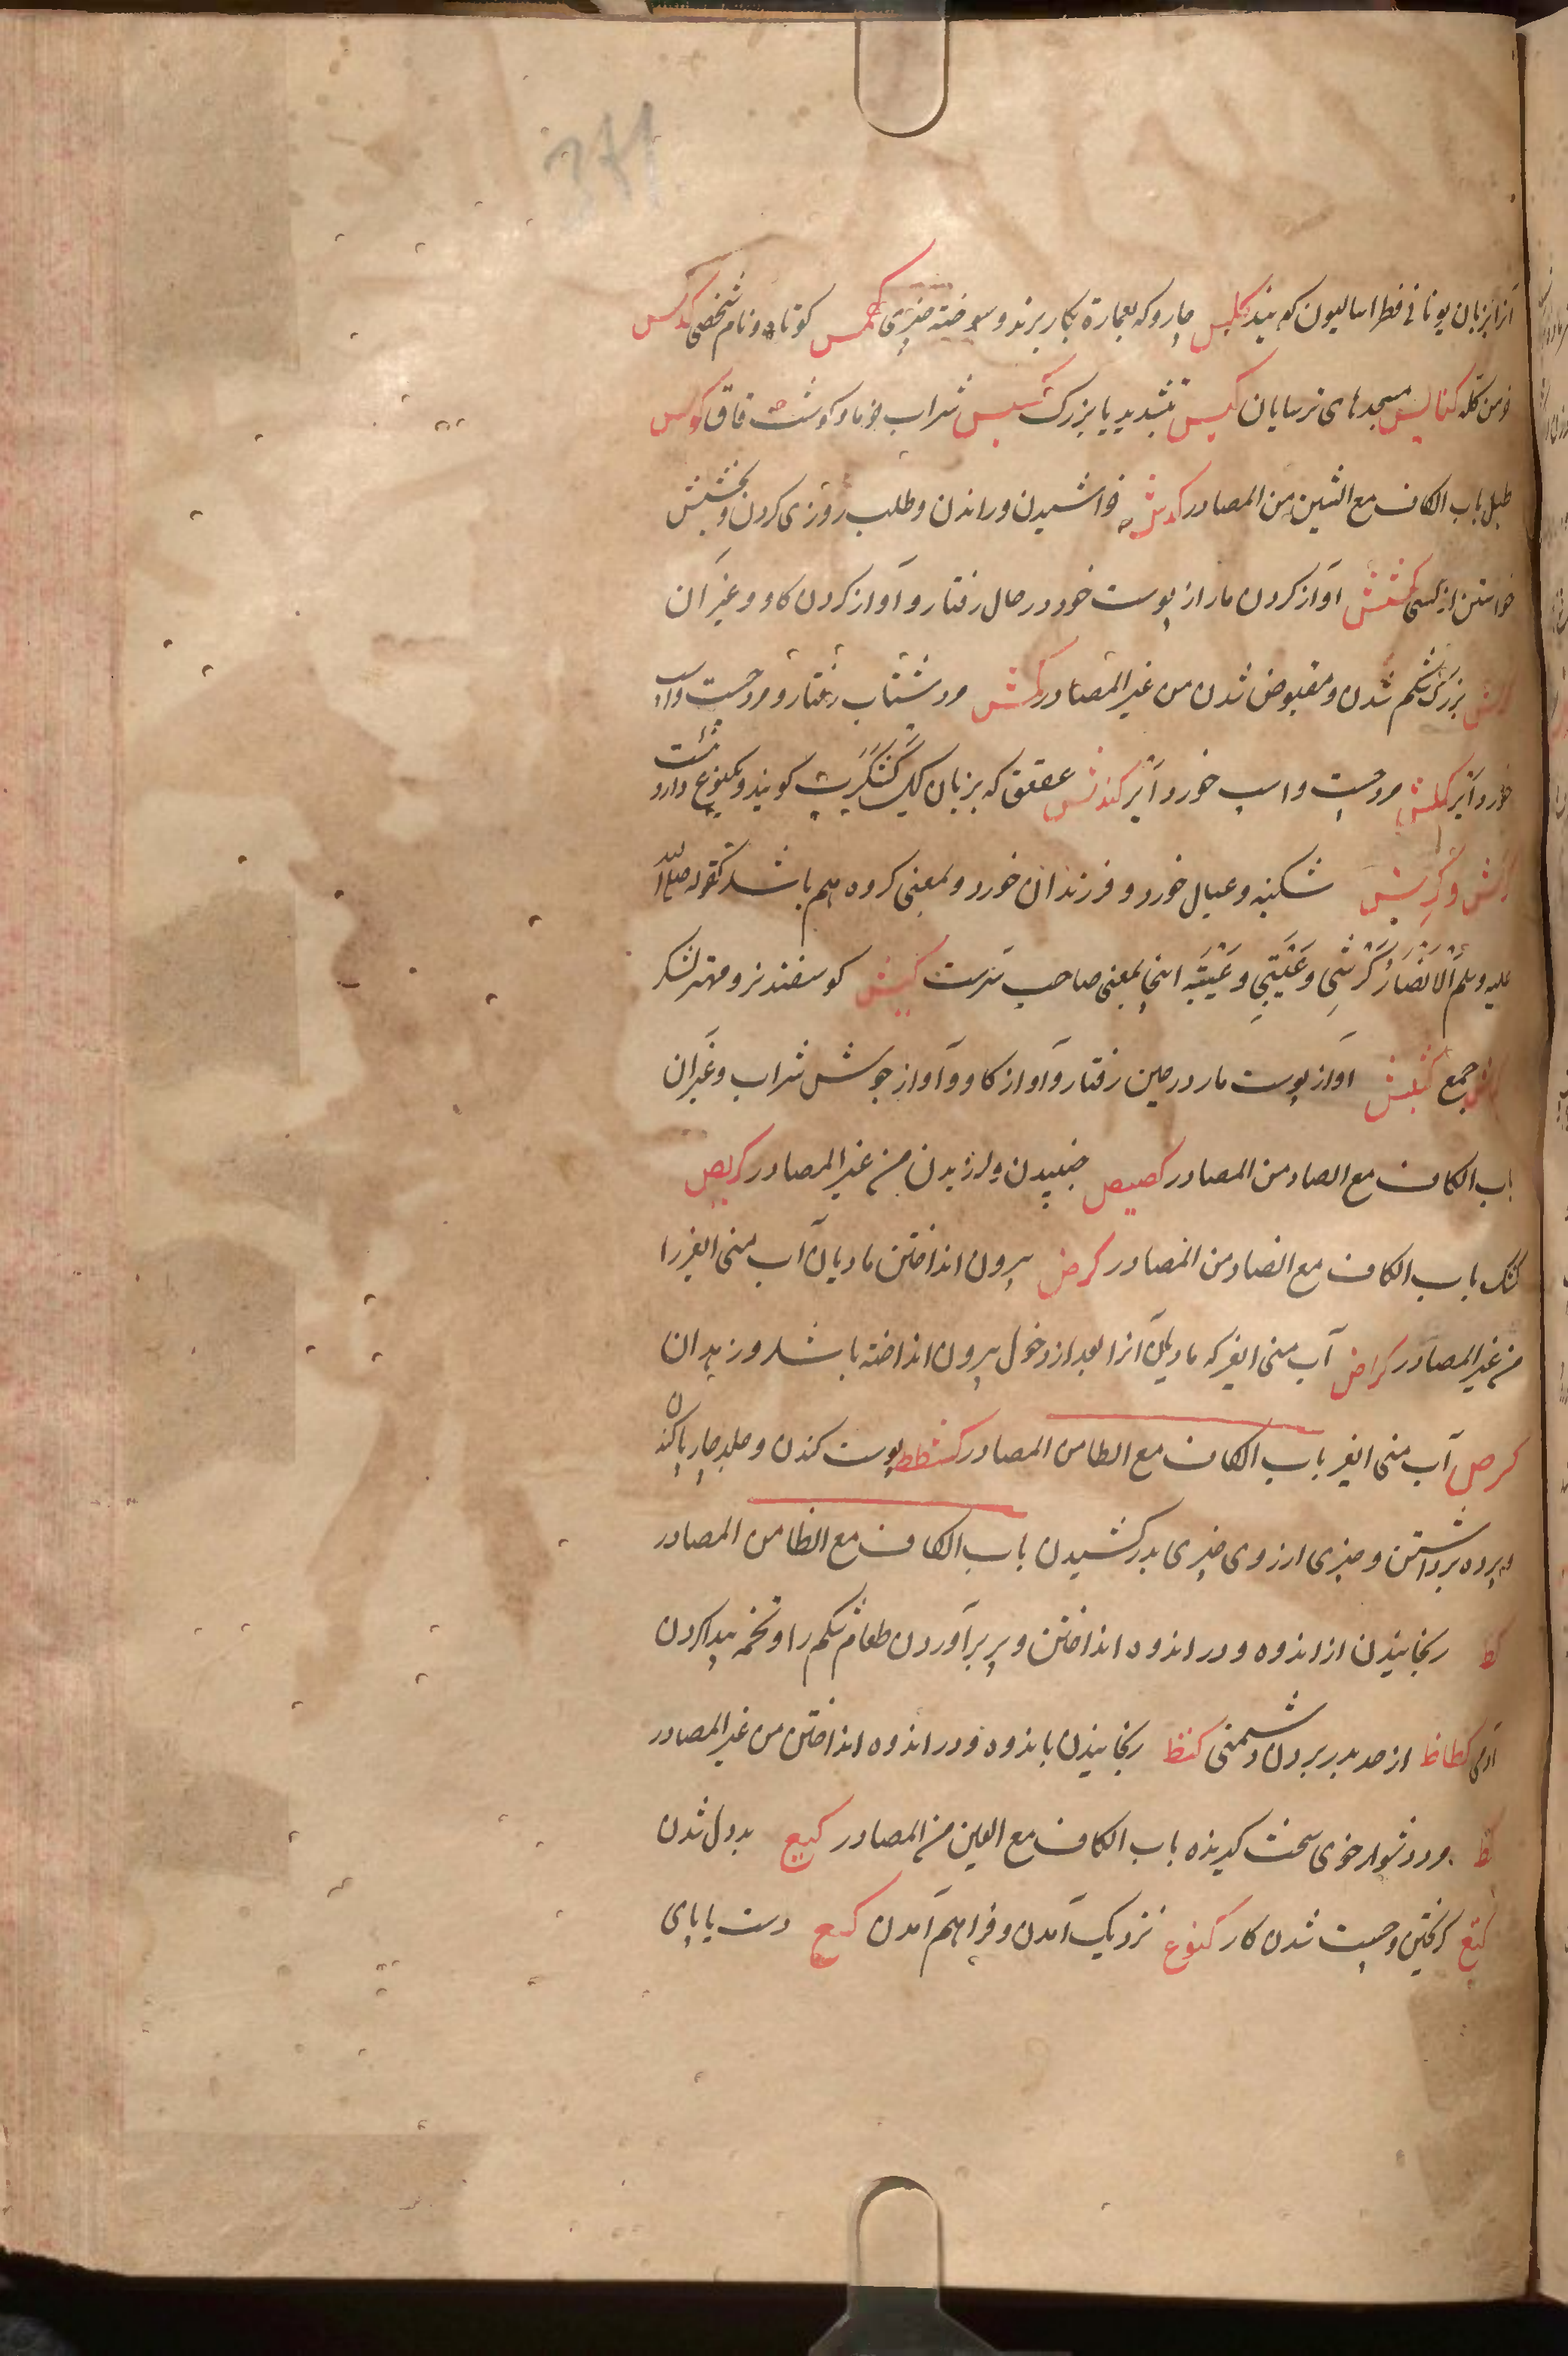 371
آنرا بزبان یونانی فطراسالیون کویند کلس چاروکه بعمارة بکار برند و سوخته چیزی کمس کوتاه و نام شخصی کدس
خرمن کله کنایس مسجدهای ترسایان کیس بتشدید یا بزرک کسیس شراب خرما و کوشت قاق کوس
طبل باب الکاف مع الشین من المصادر کدش خراشیدن و راندن و طلب روزی کردن و بخشش
خواستن از کسی کشش آواز کردن مار از پوست خود در حال رفتار و آواز کردن کاو و غیر آن
کرش بزرک شکم شدن و مقبوض شدن من غیر المصادر کمش مرد شتاب رفتار و مرد چست و اسپ
خورد آیر کمش مرد چست و اسپ خورد آیر کندش عقعق که بزبان کویند و یکنوع دارو ئست
کرش و کِرِش شکنبه و عیال خورد و فرزندان خورد و بمعنی کروه هم باشد کقوله صلی الله
علیه وسلم اَلاَنصَارُ کَرْشِی وَعَیْبَتِی و عَیْبَه اینجا بمعنی صاحب سَرست کبش کوسفند نر و مهتر لشکر
جمع کشیش آواز پوست مار در حین رفتار و آواز کاو و آواز جوشش شراب و غیر آن
باب الکاف مع الصاد من المصادر کصیص جنبیدن و لرزیدن من غیر المصادر کریص
کشک باب الکاف مع الضاد من المصادر کرض بیرون انداختن مادیان آب منی ایغر را
من غیر المصادر کراض آب منی ایغر که مادیان آنرا بعد از دخول بیرون انداخته باشد و زهدان
کرض آب منی ایغر باب الکاف مع الطا من المصادر کشط پوست کندن و جلد چارپا کندن
و پرده برداشتن و چیزی از روی چیزی بدر کشیدن باب الکاف مع الظا من المصادر
کظ رنجانیدن از اندوه و در اندوه انداختن و پر برآوردن طعام شکم را و تخمه پیدا کردن
آدمی کظاظ از حد بدر بردن دشمنی کنظ رنجانیدن باندوه و در اندوه انداختن من غیر المصادر
کظ مرد دشوار خوی سخت کیرنده باب الکاف مع العین من المصادر کیع بددل شدن
کتع کریختن و چست شدن کار کنوع نزدیک آمدن و فراهم آمدن کسع دست یا پای